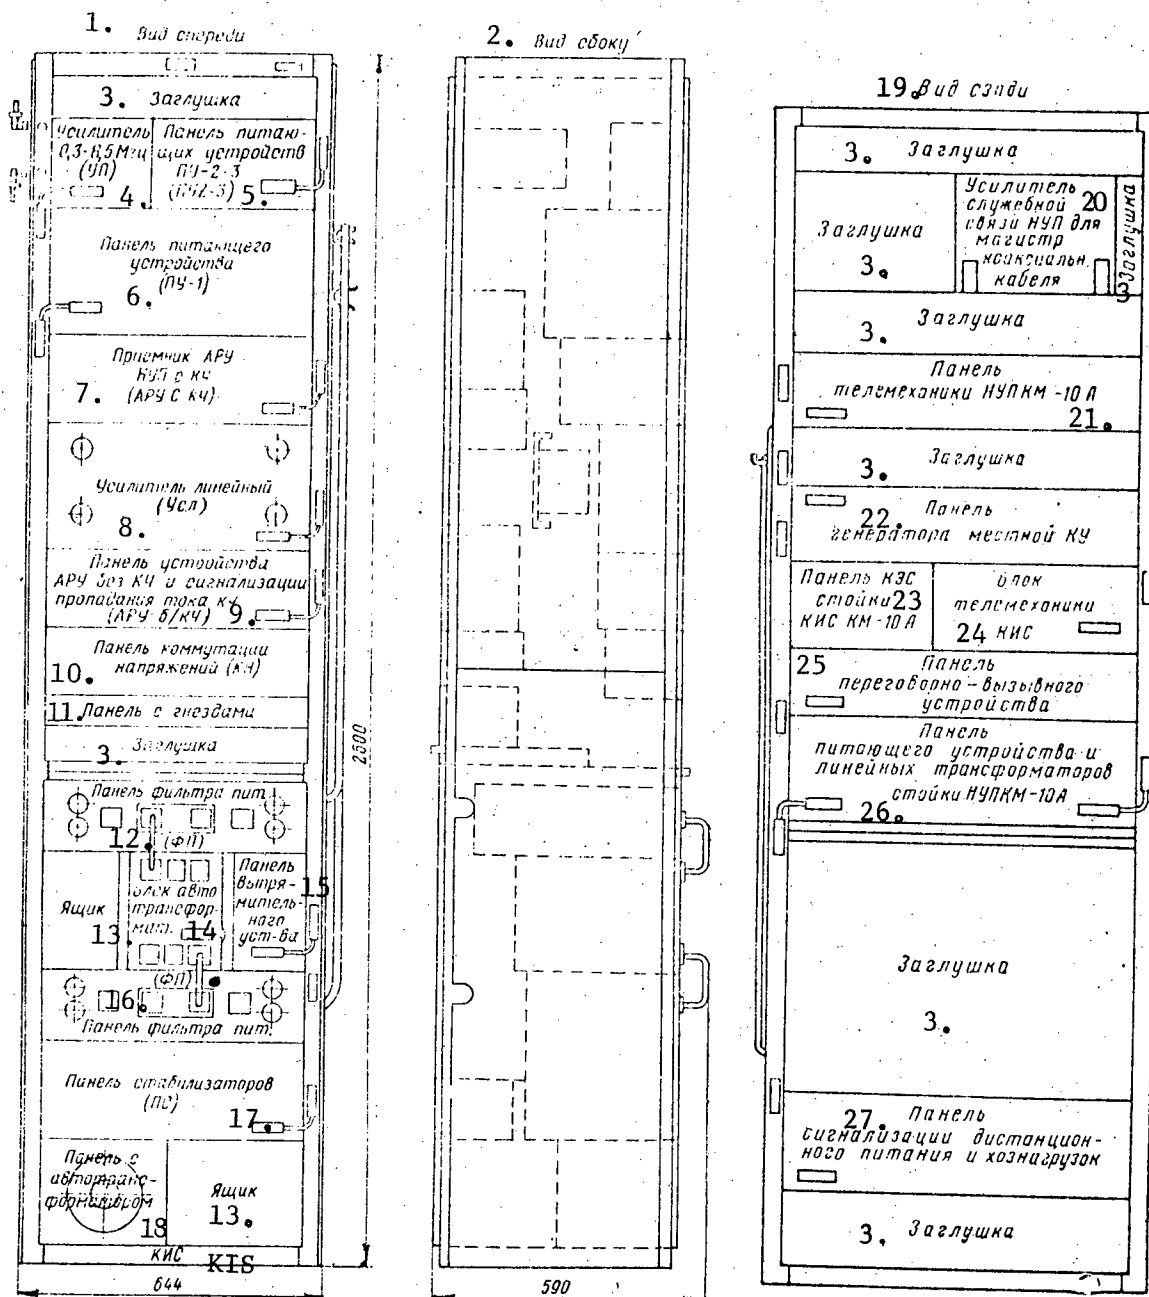 1. Вид спереди
3. Заглушка
Усилитель
0,3-8,5Мгц
(УП)
4.
Панель питаю-
щих устройств
ПУ-2-3
(ПУ2-3) 5.
Панель питающего
устройства
(ПУ-1)
6.
Приемник АРУ
НУП с КЧ
7. (АРУ С КЧ)
Усилитель линейный
(Усл)
8.
Панель устройства
АРУ без КЧ и сигнализации
пропадания тока кч
(АРУ б/КЧ) 9.
Панель коммутации
10. напряжений (КН)
11. Панель с гнездами
Заглушка
3.
Панель фильтра пит.
12. (ФП)
Ящик
13.
Блок авто
трансфор-
мат. 14.
Панель
выпря- 15
митель-
ного
уст-ва
(ФП)
16.
Панель фильтра пит.
Панель стабилизаторов
(ПС)
17.
Панель с
автотранс-
форматором
18
Ящик
13.
КИС
KIS
644
2600
2. Вид сбоку
590
19. Вид сзади
3. Заглушка
Заглушка
3.
Усилитель 20
служебной
связи НУП для
магистр
коаксиальн.
кабеля
Заглушка
3
Заглушка
3.
Панель
телемеханики НУПКМ-10А
21.
Заглушка
3.
22. Панель
генератора местной КУ
Панель КЭС
стойки 23
КИС КМ-10А
блок
телемеханики
24 КИС
25 Панель
переговорно-вызывного
устройства
Панель
питающего устройства и
линейных трансформаторов
стойки НУПКМ-10А
26.
Заглушка
3.
27. Панель
сигнализации дистанцион-
ного питания и хознагрузок
3. Заглушка